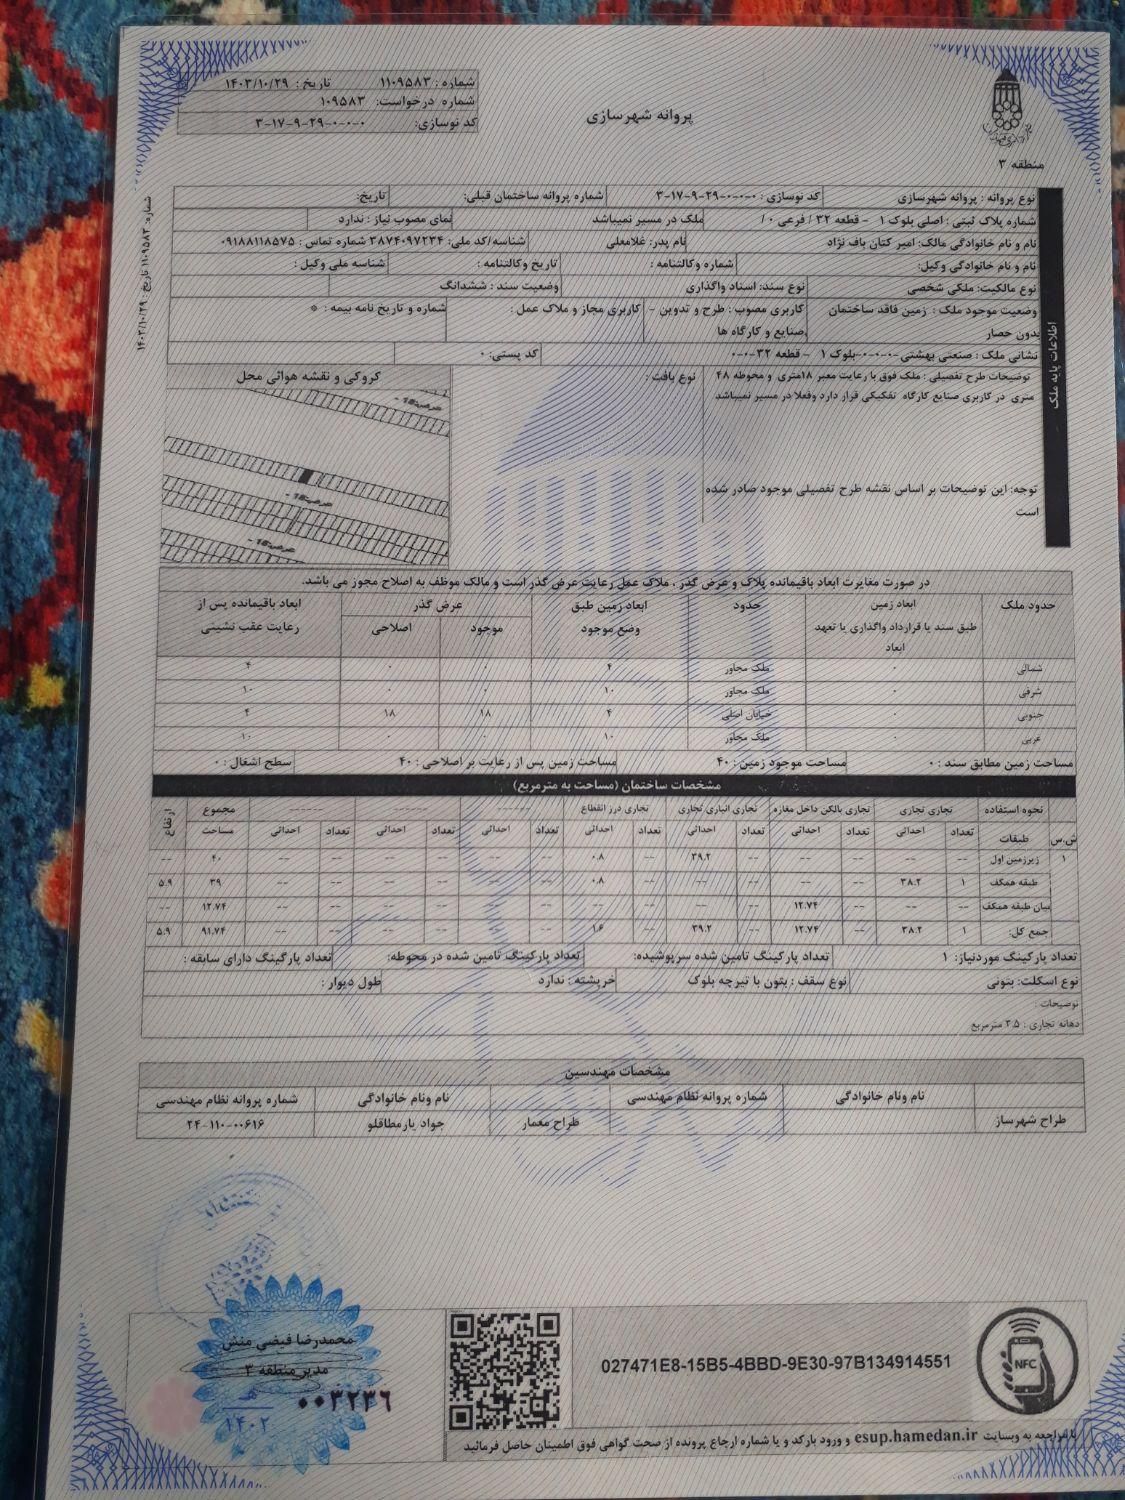 شماره : ۱۱۰۹۵۸۳ تاریخ : ۱۴۰۳/۱۰/۲۹
شماره درخواست: ۱۰۹۵۸۳
کد نوسازی: ۳-۱۷-۹-۲۹-۰-۰-۰
پروانه شهرسازی
منطقه ۳
شماره: ۱۱۰۹۵۸۳ تاریخ : ۱۴۰۳/۱۰/۲۹
اطلاعات پایه ملک
نوع پروانه : پروانه شهرسازی کد نوسازی : ۳-۱۷-۹-۲۹-۰-۰-۰ شماره پروانه ساختمان قبلی: تاریخ:
شماره پلاک ثبتی : اصلی بلوک ۱ - قطعه ۳۲ / فرعی ۰/ ملک در مسیر نمیباشد نمای مصوب نیاز : ندارد
نام و نام خانوادگی مالک: امیر کتان باف نژاد نام پدر: غلامعلی شناسه/کد ملی: ۳۸۷۴۰۹۷۲۳۴ شماره تماس : ۰۹۱۸۸۱۱۸۵۷۵
نام و نام خانوادگی وکیل: شماره وکالتنامه : تاریخ وکالتنامه : شناسه ملی وکیل :
نوع مالکیت: ملکی شخصی نوع سند: اسناد واگذاری وضعیت سند : ششدانگ
وضعیت موجود ملک : زمین فاقد ساختمان کاربری مصوب : طرح و تدوین - کاربری مجاز و ملاک عمل : شماره و تاریخ نامه بیمه : *
بدون حصار صنایع و کارگاه ها
نشانی ملک : صنعتی بهشتی -۰-۰-۰-بلوک ۱ - قطعه ۳۲-۰-۰ کد پستی: ۰
توضیحات طرح تفصیلی : ملک فوق با رعایت معبر ۱۸متری و محوطه ۴۸ نوع بافت : کروکی و نقشه هوائی محل
متری در کاربری صنایع کارگاه تفکیکی قرار دارد وفعلا در مسیر نمیباشد
توجه: این توضیحات بر اساس نقشه طرح تفصیلی موجود صادر شده
است
در صورت مغایرت ابعاد باقیمانده پلاک و عرض گذر ، ملاک عمل رعایت عرض گذر است و مالک موظف به اصلاح مجوز می باشد.
حدود ملک ابعاد زمین حدود ابعاد زمین طبق عرض گذر ابعاد باقیمانده پس از
طبق سند یا قرارداد واگذاری یا تعهد وضع موجود موجود اصلاحی رعایت عقب نشینی
ابعاد
شمالی ۰ ملک مجاور ۴ ۰ ۰ ۴
شرقی ۰ ملک مجاور ۱۰ ۰ ۰ ۱۰
جنوبی ۰ خیابان اصلی ۴ ۱۸ ۱۸ ۴
غربی ۰ ملک مجاور ۱۰ ۰ ۰ ۱۰
مساحت زمین مطابق سند : ۰ مساحت موجود زمین : ۴۰ مساحت زمین پس از رعایت بر اصلاحی : ۴۰ سطح اشغال : ۰
مشخصات ساختمان (مساحت به مترمربع)
نحوه استفاده تجاری تجاری تجاری بالکن داخل مغازه تجاری انباری تجاری تجاری درز انقطاع ------ ------ ------ مجموع ارتفاع
ش.س طبقات تعداد احداثی تعداد احداثی تعداد احداثی تعداد احداثی تعداد احداثی تعداد احداثی تعداد احداثی مساحت
۱ زیرزمین اول -- -- -- -- -- ۳۹.۲ -- ۰.۸ -- -- -- -- -- -- ۴۰ --
طبقه همکف ۱ ۳۸.۲ -- -- -- -- -- ۰.۸ -- -- -- -- -- -- ۳۹ ۵.۹
میان طبقه همکف -- -- -- ۱۲.۷۴ -- -- -- -- -- -- -- -- -- -- ۱۲.۷۴ --
جمع کل: ۱ ۳۸.۲ -- ۱۲.۷۴ -- ۳۹.۲ -- ۱.۶ -- -- -- -- -- -- ۹۱.۷۴ ۵.۹
تعداد پارکینگ موردنیاز: ۱ تعداد پارکینگ تامین شده سرپوشیده: تعداد پارکینگ تامین شده در محوطه: تعداد پارگینگ دارای سابقه :
نوع اسکلت: بتونی نوع سقف : بتون با تیرچه بلوک خرپشته : ندارد طول دیوار :
توضیحات :
دهانه تجاری : ۳.۵ مترمربع
مشخصات مهندسین
نام ونام خانوادگی شماره پروانه نظام مهندسی نام ونام خانوادگی شماره پروانه نظام مهندسی
طراح شهرساز طراح معمار جواد یارمطاقلو ۲۴-۱۱۰-۰۰۶۱۶
محمدرضا فیضی منش
مدیر منطقه ۳
۰۰۳۲۳۶
۱۴۰۲
027471E8-15B5-4BBD-9E30-97B134914551
NFC
با مراجعه به وبسایت esup.hamedan.ir و ورود بارکد و یا شماره ارجاع پرونده از صحت گواهی فوق اطمینان حاصل فرمائید